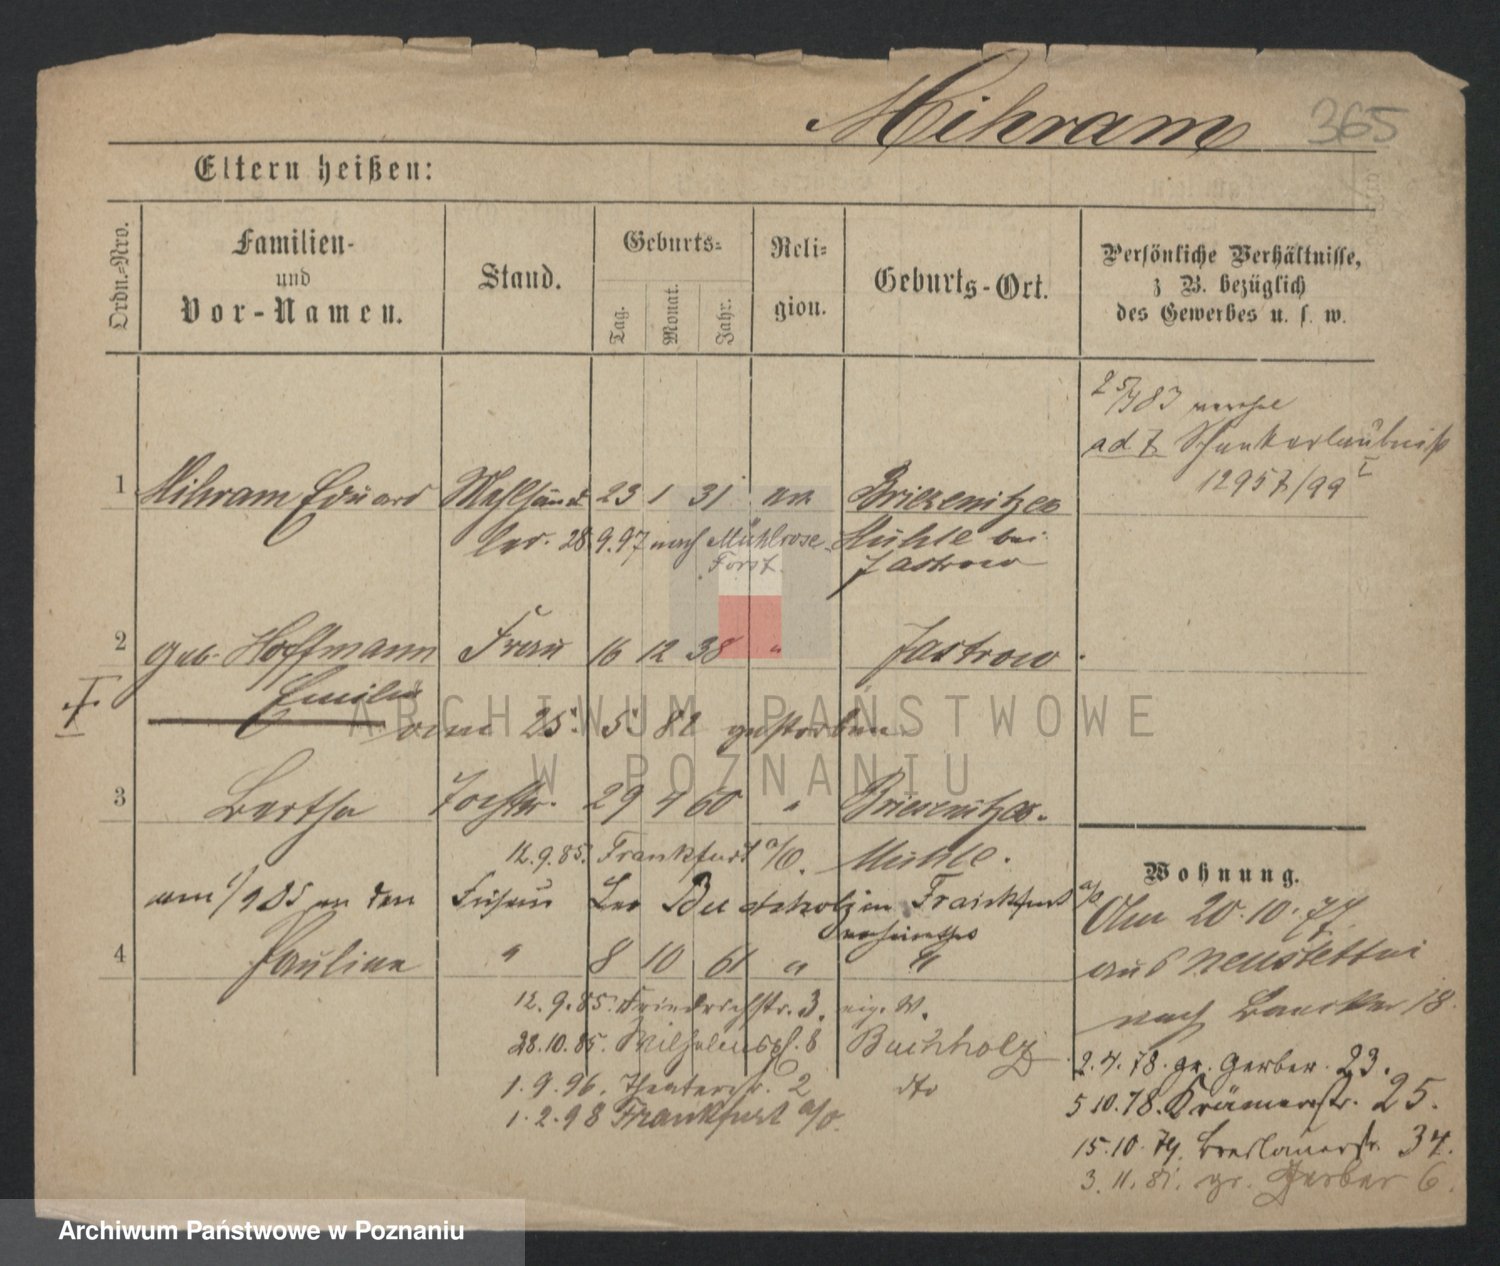 Mihram 365
Eltern heißen:
Ordn.-Nro.
Familien-
und
Vor-Namen.
Stand.
Geburts-
Tag.
Monat.
Jahr.
Reli-
gion.
Geburts-Ort.
Persönliche Verhältnisse,
z B. bezüglich
des Gewerbes u. s. w.
ad 7 Schankerlaubniß
12957/99 I
1 Mihram Eduard 23 1 31
28.9.97 nach Müllrose Mühle bei
Forst. Jastrow
2 geb. Hoffmann Frau 16 12 38 " Jastrow.
Emilie
am 25. 5. 82 gestorben
3 Bertha Tochter. 29 4 60 "
12.9.85. Frankfurt a/O. Mühle.
am 1/9 85 an den Friseur Leo Buchholz in Frankfurt a/O
verheirathet
4 Pauline " 8 10 61 " "
12.9.85. Friedrichstr. 3. eig. W.
28.10.85. Wilhelmspl. 8 Buchholz
1.9.96. Theaterstr. 2 dto
1.2.98 Frankfurt a/O.
Wohnung.
20.10.77.
aus Neustettin
nach Baecker 18.
2.4.78. gr. Gerber. 23.
5 10.78. Krämerstr. 25.
15.10.79. Breslauerstr. 34.
3.11.81. gr. Gerber 6.
ARCHIWUM PAŃSTWOWE
W POZNANIU
Archiwum Państwowe w Poznaniu